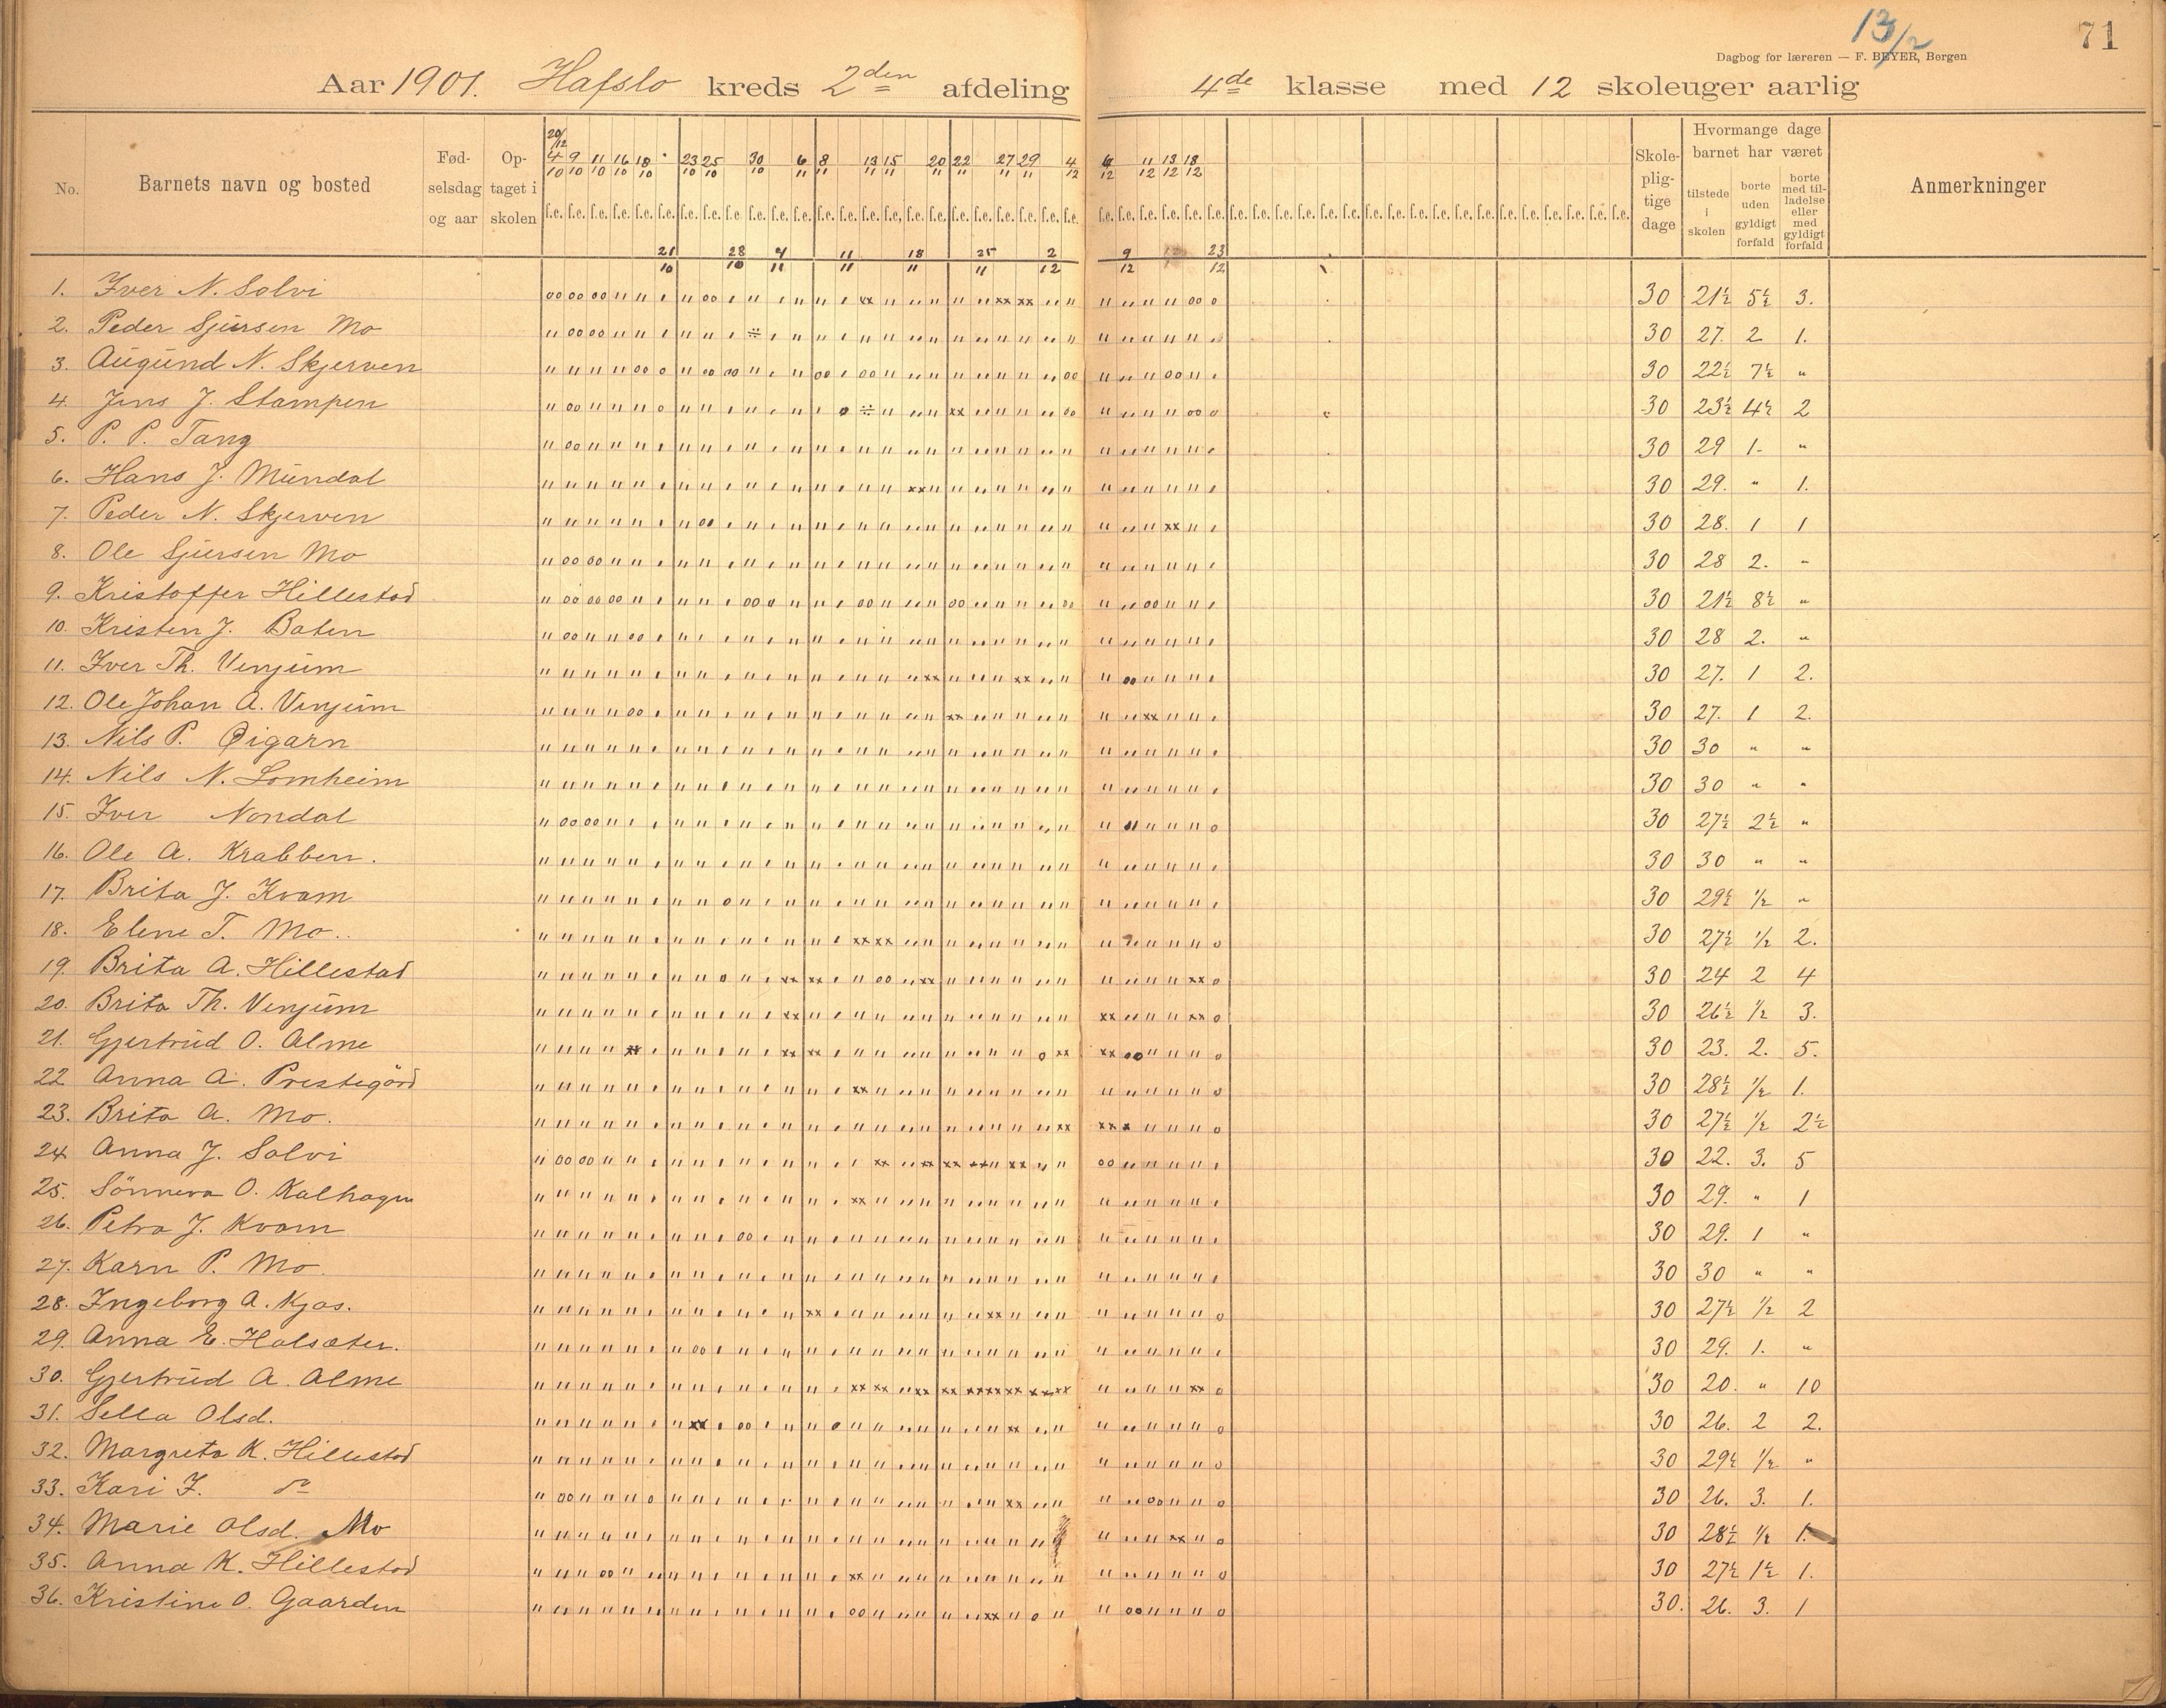 13/2
71
Dagbog for læreren — F. BEYER, Bergen
Aar 1901. Hafslo kreds 2den afdeling 4de klasse med 12 skoleuger aarlig
No. Barnets navn og bosted Fød-selsdag og aar Op-taget i skolen Skole-plig-tige dage Hvormange dage barnet har været tilstede i skolen borte uden gyldigt forfald borte med til-ladelse eller med gyldigt forfald Anmerkninger
20/12
4/10 9/10 11/10 16/10 18/10 23/10 25/10 30/10 6/11 8/11 13/11 15/11 20/11 22/11 27/11 29/11 4/12 6/12 11/12 13/12 18/12
f.e. f.e. f.e. f.e. f.e. f.e. f.e. f.e. f.e. f.e. f.e. f.e. f.e. f.e. f.e. f.e. f.e. f.e. f.e. f.e. f.e. f.e. f.e. f.e.
21/10 28/10 4/11 11/11 18/11 25/11 2/12 9/12 23/12
1. Iver N. Solvi 30 21½ 5½ 3.
2. Peder Sjursen Mo 30 27. 2 1.
3. Augund N. Skjerven 30 22½ 7½ "
4. Jens J. Stampen 30 23½ 4½ 2
5. P. P. Tang 30 29 1- "
6. Hans J. Mundal 30 29. " 1.
7. Peder N. Skjerven 30 28. 1 1
8. Ole Sjursen Mo 30 28 2. "
9. Kristoffer Hillestad 30 21½ 8½ "
10. Kristen J. Baten 30 28 2. "
11. Iver Th. Venjum 30 27. 1 2.
12. Ole Johan A. Venjum 30 27. 1 2.
13. Nils P. Øigarn 30 30 " "
14. Nils N. Lomheim 30 30 " "
15. Iver Nondal 30 27½ 2½ "
16. Ole A. Krabben. 30 30 " "
17. Brita J. Kvam 30 29½ 1/2 "
18. Elene T. Mo. 30 27½ 1/2 2.
19. Brita A. Hillestad 30 24 2 4
20. Brita Th. Venjum 30 26½ 1/2 3.
21. Gjertrud O. Alme 30 23. 2. 5.
22 Anna A. Prestegård 30 28½ 1/2 1.
23. Brita A. Mo. 30 27½ 1/2 2½
24 Anna J. Solvi 30 22. 3. 5
25. Sönneva O. Kalhagen 30 29. " 1
26. Petra J. Kvam 30 29. 1 "
27. Karn P. Mo. 30 30 " "
28. Ingeborg A. Kjos. 30 27½ 1/2 2
29. Anna E. Halsæter. 30 29. 1. "
30. Gjertrud A. Alme 30 20. " 10
31. Sella Olsd. 30 26. 2 2.
32. Margreta K. Hillestad 30 29½ 1/2 "
33. Kari I. do 30 26. 3. 1.
34. Marie Olsd. Mo 30 28½ 1/2 1.
35. Anna K. Hillestad 30 27½ 1½ 1.
36. Kristine O. Gaarden 30. 26. 3. 1